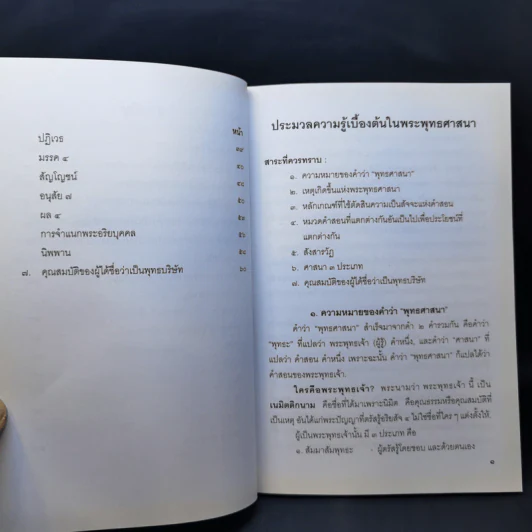 หน้า
ปฏิเวธ
มรรค ๔
สัญโญชน์
อนุสัย ๗
ผล ๔
การจำแนกพระอริยบุคคล
นิพพาน
๗. คุณสมบัติของผู้ได้ชื่อว่าเป็นพุทธบริษัท
ประมวลความรู้เบื้องต้นในพระพุทธศาสนา
สาระที่ควรทราบ :
๑. ความหมายของคำว่า "พุทธศาสนา"
๒. เหตุเกิดขึ้นแห่งพระพุทธศาสนา
๓. หลักเกณฑ์ที่ใช้ตัดสินความเป็นสัจจะแห่งคำสอน
๔. หมวดคำสอนที่แตกต่างกันอันเป็นไปเพื่อประโยชน์ที่
แตกต่างกัน
๕. สังสารวัฏ
๖. ศาสนา ๓ ประเภท
๗. คุณสมบัติของผู้ได้ชื่อว่าเป็นพุทธบริษัท
๑. ความหมายของคำว่า "พุทธศาสนา"
คำว่า "พุทธศาสนา" สำเร็จมาจากคำ ๒ คำรวมกัน คือคำว่า
"พุทธะ" ที่แปลว่า พระพุทธเจ้า (ผู้รู้) คำหนึ่ง, และคำว่า "ศาสนา" ที่
แปลว่า คำสอน คำหนึ่ง เพราะฉะนั้น คำว่า "พุทธศาสนา" ก็แปลได้ว่า
คำสอนของพระพุทธเจ้า.
ใครคือพระพุทธเจ้า? พระนามว่า พระพุทธเจ้า นี้ เป็น
เนมิตติกนาม คือชื่อที่ได้มาเพราะนิมิต คือคุณธรรมหรือคุณสมบัติที่
เป็นเหตุ อันได้แก่พระปัญญาที่ตรัสรู้อริยสัจ ๔ ไม่ใช่ชื่อที่ใคร ๆ แต่งตั้งให้.
ผู้เป็นพระพุทธเจ้านั้น มี ๓ ประเภท คือ
๑. สัมมาสัมพุทธะ - ผู้ตรัสรู้โดยชอบ และด้วยตนเอง
๑